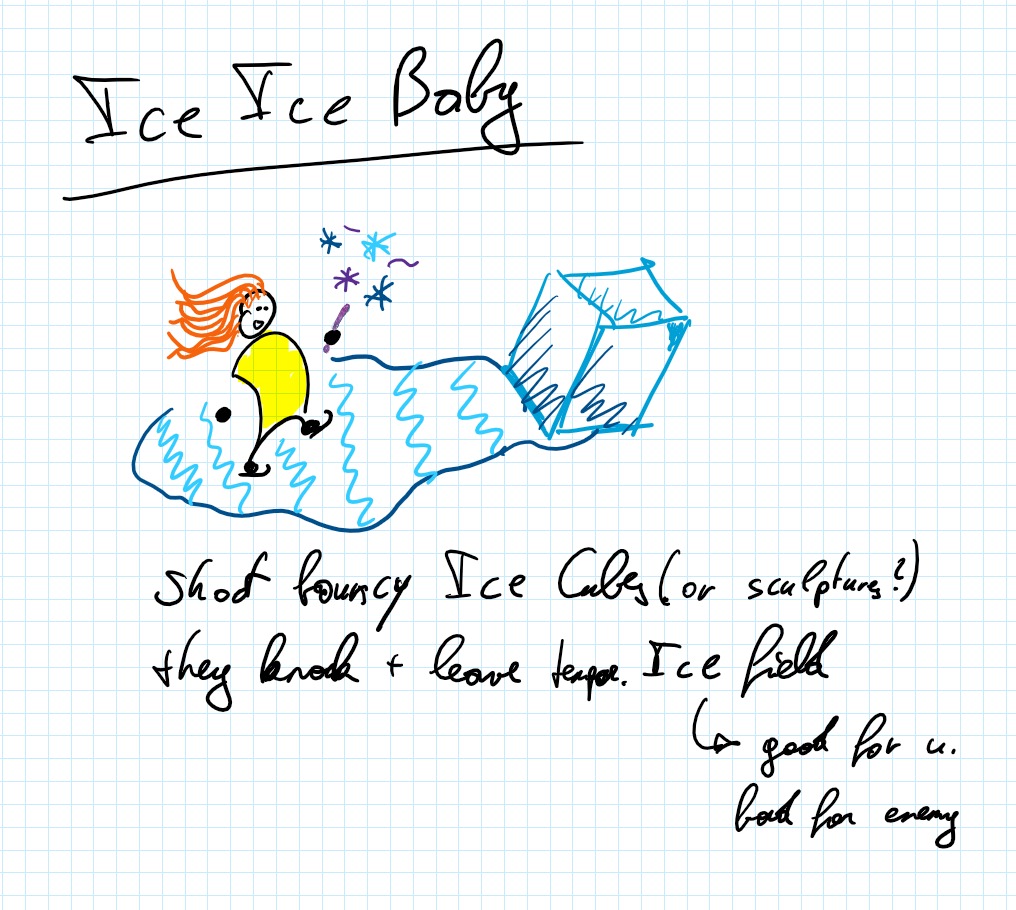 Ice Ice Baby
shoot bouncy Ice Cubes (or sculptures?)
they knock + leave tempor. Ice field
↳ good for u.
bad for enemy